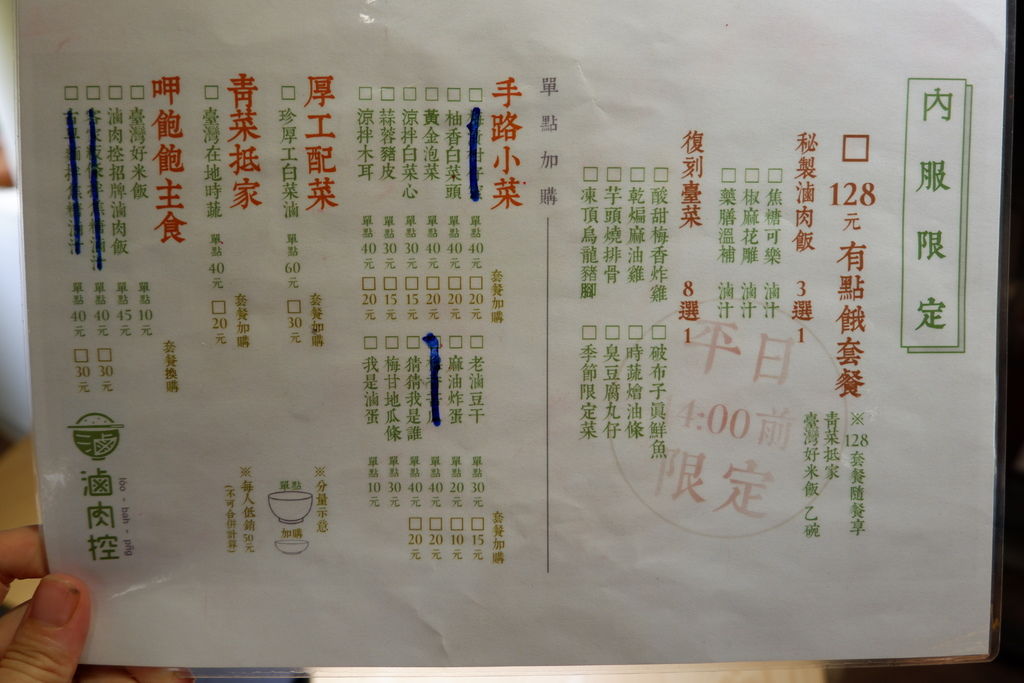 內服限定
□ 128元 有點餓套餐
※ 128 套餐隨餐享
青菜抵家
臺灣好米飯 乙碗
秘製滷肉飯 3選1
□ 焦糖可樂 滷汁
□ 椒麻花雕 滷汁
□ 藥膳溫補 滷汁
復刻臺菜 8選1
□ 酸甜梅香炸雞
□ 乾煸麻油雞
□ 芋頭燒排骨
□ 凍頂烏龍豬腳
□ 破布子眞鮮魚
□ 時蔬燴油條
□ 臭豆腐丸仔
□ 季節限定菜
平日
4:00前
限定
單點加購
手路小菜
套餐加購
單點40元 □20元
□ 柚香白菜頭 單點40元 □20元
□ 黃金泡菜 單點40元 □20元
□ 涼拌白菜心 單點30元 □15元
□ 蒜蓉豬皮 單點30元 □15元
□ 涼拌木耳 單點40元 □20元
套餐加購
□ 老滷豆干 單點30元 □15元
□ 麻油炸蛋 單點20元 □10元
單點40元 □20元
□ 猜猜我是誰 單點40元 □20元
□ 梅甘地瓜條 單點30元
□ 我是滷蛋 單點10元
厚工配菜
套餐加購
□ 珍厚工白菜滷 單點60元 □30元
青菜抵家
套餐加購
□ 臺灣在地時蔬 單點40元 □20元
※分量示意
單點
加購
※每人低銷50元
(不可合併計算)
呷飽飽主食
套餐換購
□ 臺灣好米飯 單點10元
□ 滷肉控招牌滷肉飯 單點45元
單點40元 □30元
單點40元 □30元
滷
滷肉控
lóo-bah-pńg